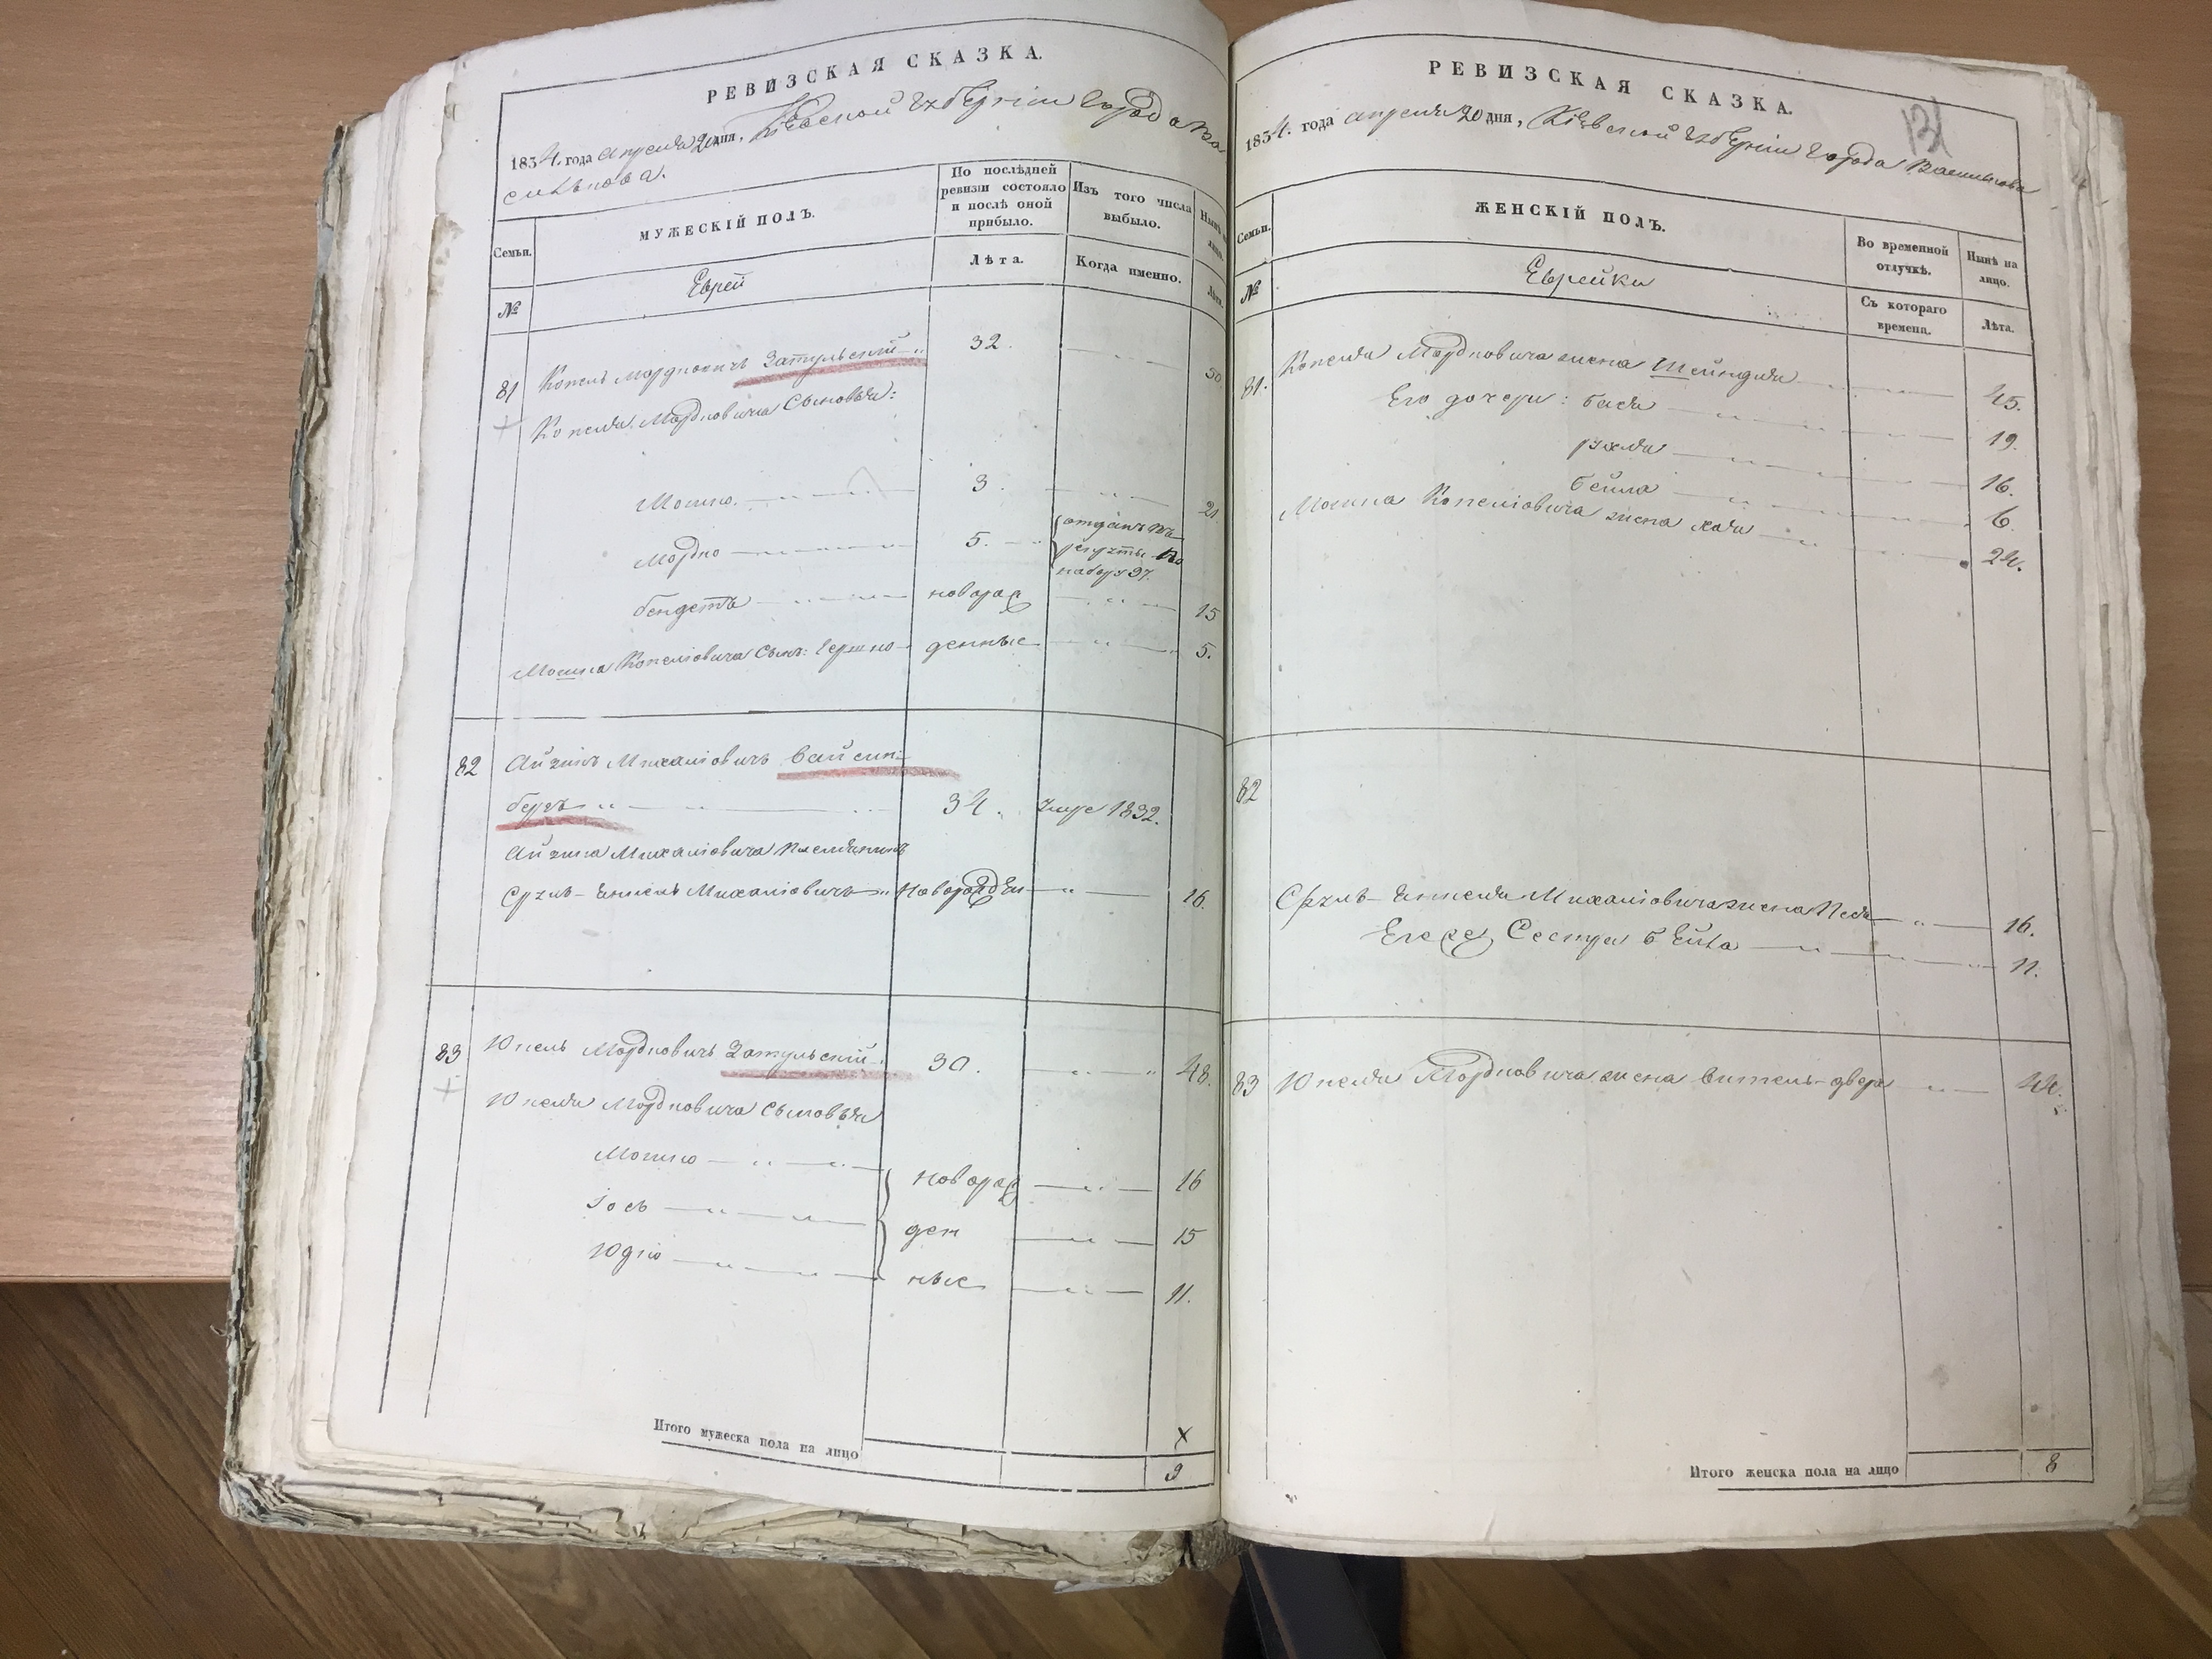 РЕВИЗСКАЯ СКАЗКА.
1854. года апреля 20 дня, Кіевской губерніи города Ва-
силькова.
Семьи.
МУЖЕСКІЙ ПОЛЪ.
По послѣдней ревизіи состояло и послѣ оной прибыло.
Изъ того числа выбыло.
№
Еврей
Лѣта.
Когда именно.
81 Копель Мордковичъ Затульскій 32. 50.
Копеля Мордковича Сыновья:
Мошко 3. 21
Мордко 5. отданъ въ
рекруты во
наборъ 37.
бендетъ новорож 15
Мошка Копеліовича Сынъ: Гершко денные 5.
82 Айзикъ Михаліовичъ Вайсин-
бергъ 34. умре 1832.
Айзика Михаліовича племянникъ
Срулъ-Янкель Михаліовичъ Новорожден 16.
83 Юкель Мордковичъ Затульскій 30. 48.
Юкеля Мордковича Сыновья
Мошко новорож 16
Іось ден 15
Юдко ные 11.
Итого мужеска пола на лицо
х
9
РЕВИЗСКАЯ СКАЗКА.
131
1854. года апреля 20 дня, Кіевской губерніи города Василькова
Семьи.
ЖЕНСКІЙ ПОЛЪ.
Во временной отлучкѣ.
Нынѣ на лицо.
№
Еврейки
Съ котораго времена.
Лѣта.
81. Копеля Мордковича жена Шейндля 45.
Его дочери: бася 19.
рухля 16.
бейла 6.
Мошка Копеліовича жена хая 24.
82
Срулъ-Янкеля Михаліовича жена Песя 16.
Егоже Сестра бейла 11.
83 Юкеля Мордковича жена витель-двера 44.
Итого женска пола на лицо 8